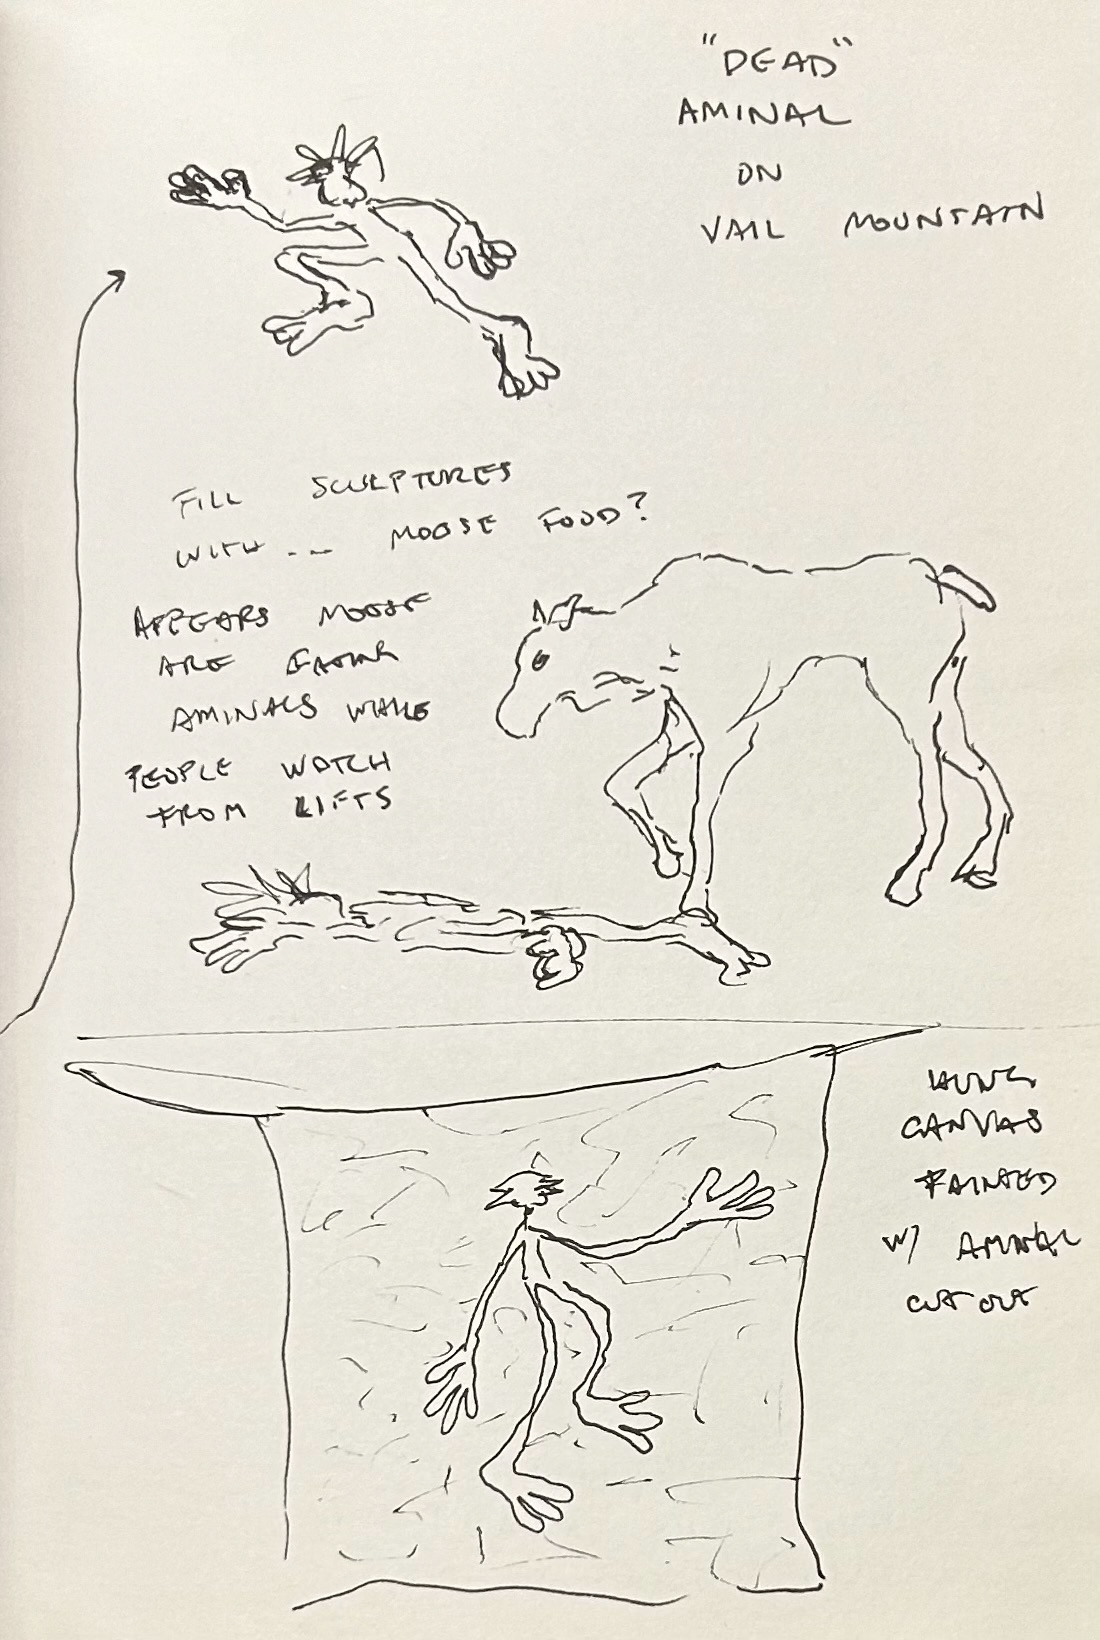 "DEAD"
AMINAL
ON
VAIL MOUNTAIN
FILL SCULPTURES
WITH... MOOSE FOOD?
APPEARS MOOSE
ARE EATING
AMINALS WHILE
PEOPLE WATCH
FROM LIFTS
HUNG
CANVAS
PAINTED
W/ AMINAL
CUT OUT